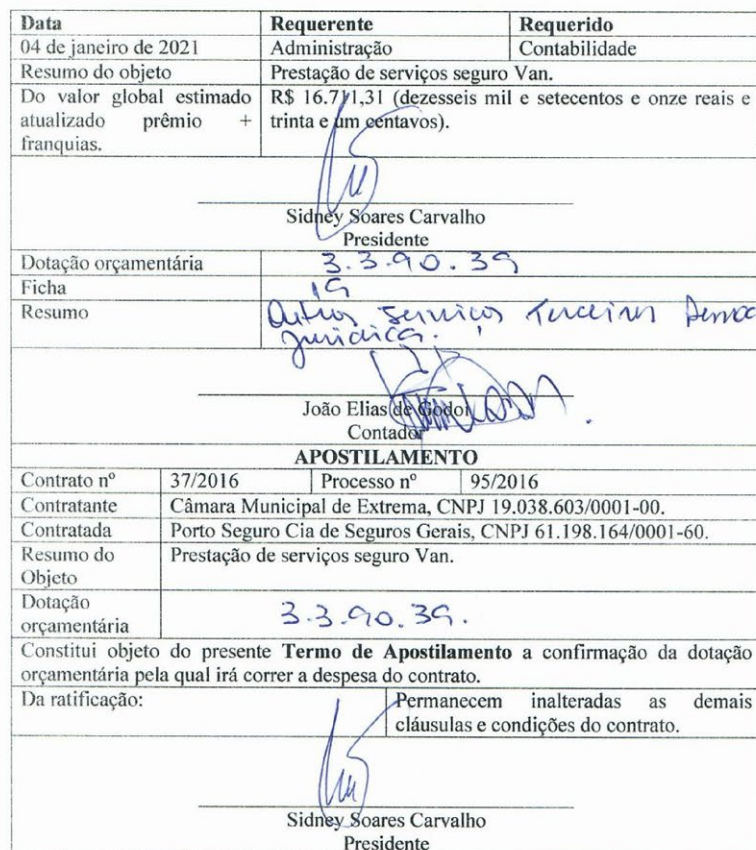 Data Requerente Requerido
04 de janeiro de 2021 Administração Contabilidade
Resumo do objeto Prestação de serviços seguro Van.
Do valor global estimado R$ 16.711,31 (dezesseis mil e setecentos e onze reais e
atualizado prêmio + trinta e um centavos).
franquias.
Sidney Soares Carvalho
Presidente
Dotação orçamentária 3.3.90.39
Ficha 19
Resumo Outros Serviços Terceiros Pessoa
Jurídica.
João Elias de Godoi
Contador
APOSTILAMENTO
Contrato nº 37/2016 Processo nº 95/2016
Contratante Câmara Municipal de Extrema, CNPJ 19.038.603/0001-00.
Contratada Porto Seguro Cia de Seguros Gerais, CNPJ 61.198.164/0001-60.
Resumo do Prestação de serviços seguro Van.
Objeto
Dotação
orçamentária 3.3.90.39.
Constitui objeto do presente Termo de Apostilamento a confirmação da dotação
orçamentária pela qual irá correr a despesa do contrato.
Da ratificação: Permanecem inalteradas as demais
cláusulas e condições do contrato.
Sidney Soares Carvalho
Presidente